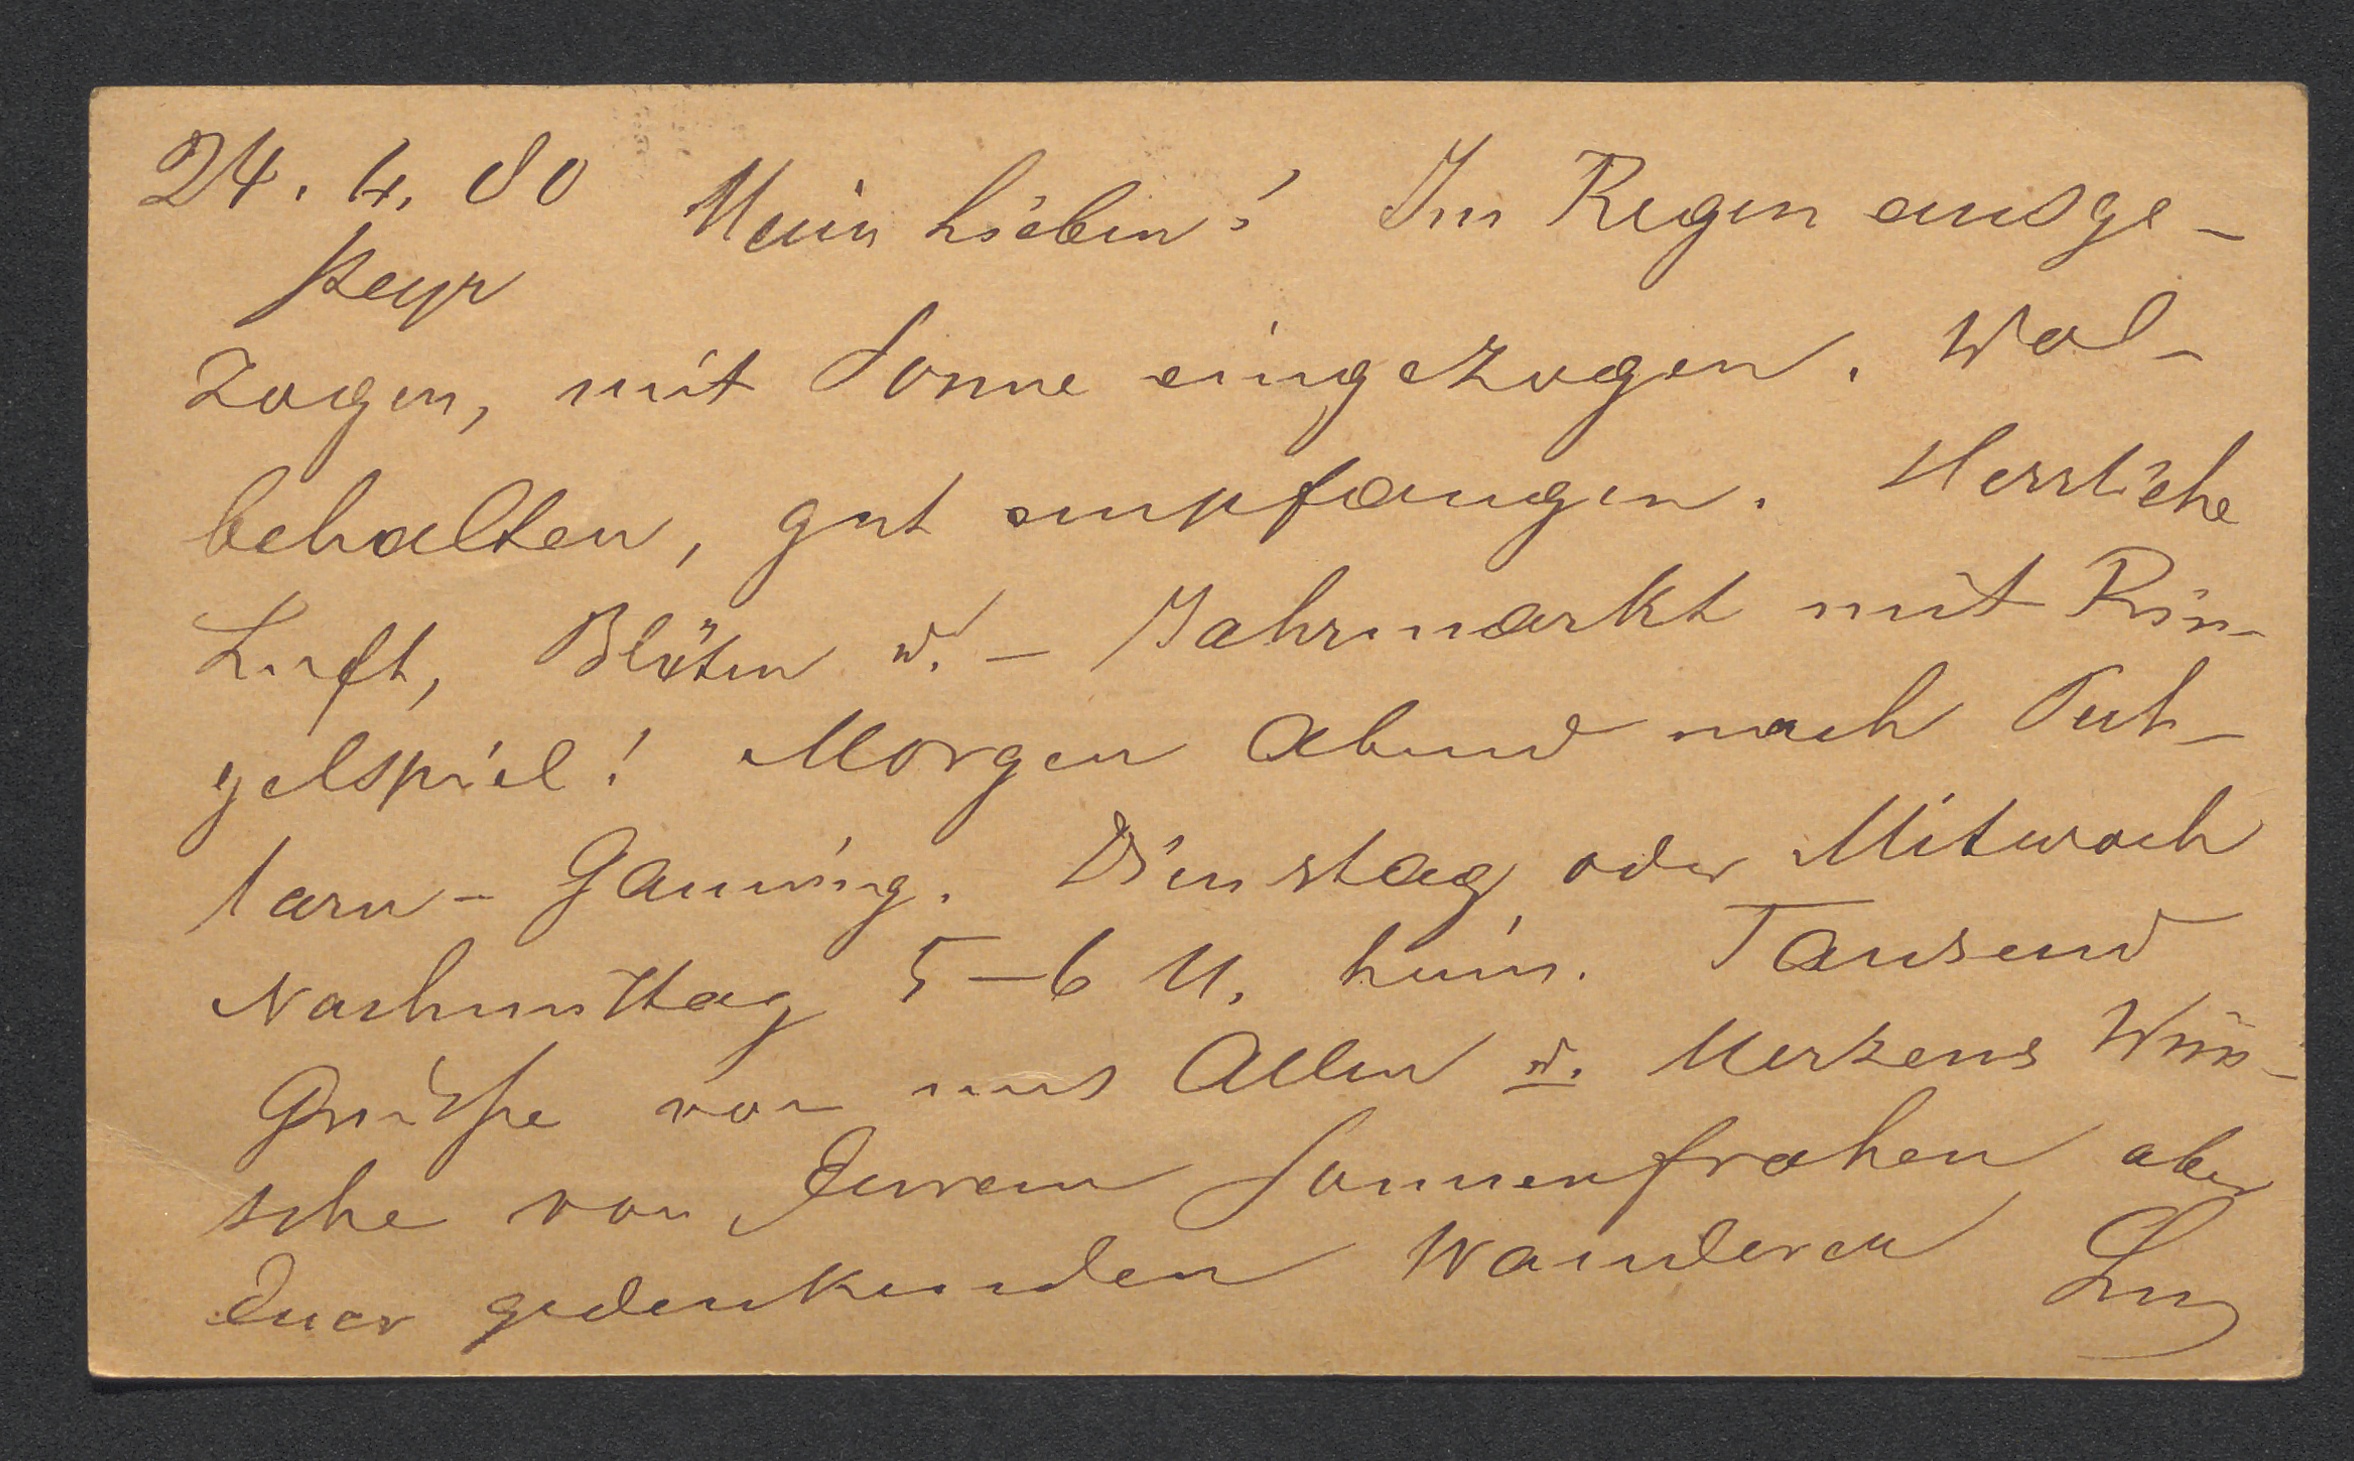 24. 4. 80 Mein Lieben! Im Regen ausge-
Steyr
zogen, mit Sonne eingezogen. Wol-
behalten, gut empfangen. Herrliche
Luft, Blüten u. – Jahrmarkt mit Rin-
gelspiel! Morgen Abend nach
– Gaming. Dienstag oder Mitwoch
Nachmittag 5–6 U. heim. Tausend
Grüße von uns Allen u. Herzens Wün-
sche von Eurem Sonnenfrohen aber
Euer gedenkenden Wanderer